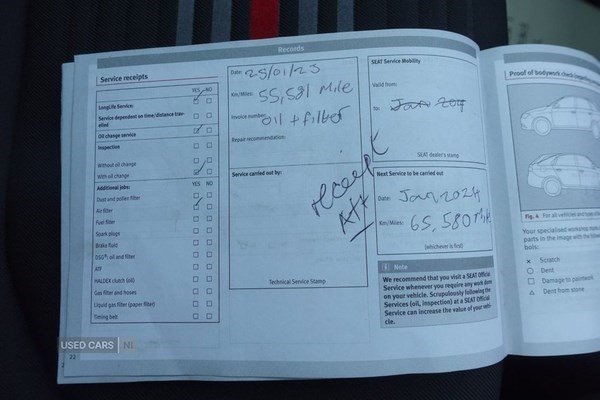 Records
Service receipts
YES NO
LongLife Service:
Service dependent on time/distance travelled
Oil change service
Inspection
Without oil change
With oil change
Additional jobs: YES NO
Dust and pollen filter
Air filter
Fuel filter
Spark plugs
Brake fluid
DSG®: oil and filter
ATF
HALDEX clutch (oil)
Gas filter and hoses
Liquid gas filter (paper filter)
Timing belt
22
Date: 25/01/23
Km/Miles: 55,581 Mile
Invoice number: oil + filter
Repair recommendation:
Service carried out by:
Technical Service Stamp
SEAT Service Mobility
Valid from:
to: Jan
SEAT dealer's stamp
Next Service to be carried out
Date: Jan 2024
Km/Miles: 65,580
(whichever is first)
Note
We recommend that you visit a SEAT Official
Service whenever you require any work done
on your vehicle. Scrupulously following the
Services (oil, inspection) at a SEAT Official
Service can increase the value of your vehi-
cle.
Proof of bodywork check
Fig. 4 For all vehicles and
Your specialised workshop
parts in the image with the
bols:
× Scratch
○ Dent
□ Damage to paintwork
△ Dent from stone
USED CARS NI